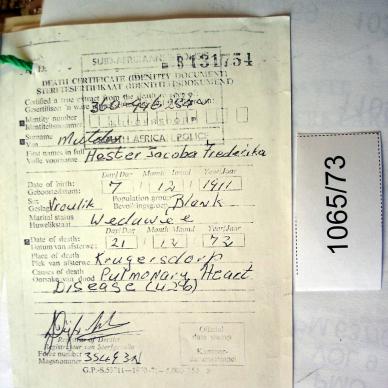 SUID-AFRIKAANSE POLISIE
B 131754
DEATH CERTIFICATE (IDENTITY DOCUMENT)
STERFTESERTIFIKAAT (IDENTITEITSDOKUMENT)
Certified a true extract from the death
Gesertifiseer 'n ware
Identity number
Identiteitsnommer
Surname
Van
SOUTH AFRICA POLICE
First names in full
Volle voorname Hester Jacoba Frederika
Day/Dag Month/Maand Year/Jaar
Date of birth: 7 12 1911
Geboortedatum:
Sex Population group
Geslag Vroulik Bevolkingsgroep Blank
Marital status
Huwelikstaat Weduwee
Day/Dag Month/Maand Year/Jaar
Date of death: 21 12 73
Datum van afsterwe:
Place of death
Plek van afsterwe Krugersdorp
Causes of death
Oorsake van dood Pulmonary Heart
Disease (426)
Registrar of Deaths
Registrateur van Sterfgevalle
Force number
Magsnommer 35493N
Official
date stamp
1065/73